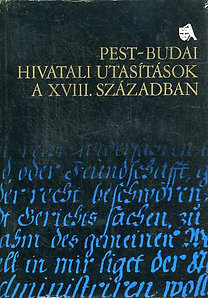 PEST-BUDAI
HIVATALI UTASÍTÁSOK
A XVIII. SZÁZADBAN
oder Freundschafft
der recht beschworen
Gerichts sachen zu
des gemeinen
in mir liget der
administriren